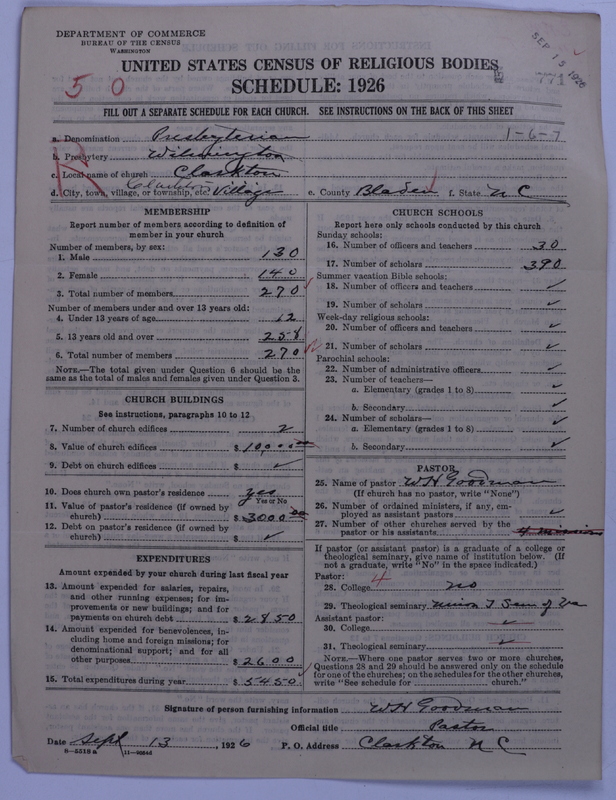 DEPARTMENT OF COMMERCE
BUREAU OF THE CENSUS
WASHINGTON
SEP 15 1926
771
5 0
UNITED STATES CENSUS OF RELIGIOUS BODIES
SCHEDULE: 1926
FILL OUT A SEPARATE SCHEDULE FOR EACH CHURCH. SEE INSTRUCTIONS ON THE BACK OF THIS SHEET
a. Denomination Presbyterian 1-6-7
b. Presbytery Wilmington
c. Local name of church Clarkton
d. City, town, village, or township, etc. Clarkton Village e. County Bladen f. State N C
MEMBERSHIP
Report number of members according to definition of
member in your church
Number of members, by sex:
1. Male 130
2. Female 140
3. Total number of members 270
Number of members under and over 13 years old:
4. Under 13 years of age 12
5. 13 years old and over 258
6. Total number of members 270
NOTE.—The total given under Question 6 should be the
same as the total of males and females given under Question 3.
CHURCH BUILDINGS
See instructions, paragraphs 10 to 12
7. Number of church edifices 2
8. Value of church edifices $ 10,000 00
9. Debt on church edifices $ ✓
10. Does church own pastor's residence yes
Yes or No
11. Value of pastor's residence (if owned by
church) $ 3000 00
12. Debt on pastor's residence (if owned by
church) $ ✓
EXPENDITURES
Amount expended by your church during last fiscal year
13. Amount expended for salaries, repairs,
and other running expenses; for im-
provements or new buildings; and for
payments on church debt $ 2850
14. Amount expended for benevolences, in-
cluding home and foreign missions; for
denominational support; and for all
other purposes $ 2600
15. Total expenditures during year $ 5450
CHURCH SCHOOLS
Report here only schools conducted by this church
Sunday schools:
16. Number of officers and teachers 30
17. Number of scholars 390
Summer vacation Bible schools:
18. Number of officers and teachers ✓
19. Number of scholars ✓
Week-day religious schools:
20. Number of officers and teachers ✓
21. Number of scholars ✓
Parochial schools:
22. Number of administrative officers ✓
23. Number of teachers—
a. Elementary (grades 1 to 8) ✓
b. Secondary ✓
24. Number of scholars—
a. Elementary (grades 1 to 8) ✓
b. Secondary ✓
PASTOR
25. Name of pastor W H Goodman
(If church has no pastor, write "None")
26. Number of ordained ministers, if any, em-
ployed as assistant pastors ✓
27. Number of other churches served by the
pastor or his assistants 4 missions
If pastor (or assistant pastor) is a graduate of a college or
theological seminary, give name of institution below. (If
not a graduate, write "No" in the space indicated.)
Pastor: 4
28. College no
29. Theological seminary Union T Sem of Va
Assistant pastor:
30. College ✓
31. Theological seminary ✓
NOTE.—Where one pastor serves two or more churches,
Questions 28 and 29 should be answered only on the schedule
for one of the churches; on the schedules for the other churches,
write "See schedule for church."
Signature of person furnishing information W H Goodman
Official title Pastor
Date Sept 13, 1926 P. O. Address Clarkton N C
8—5518 a